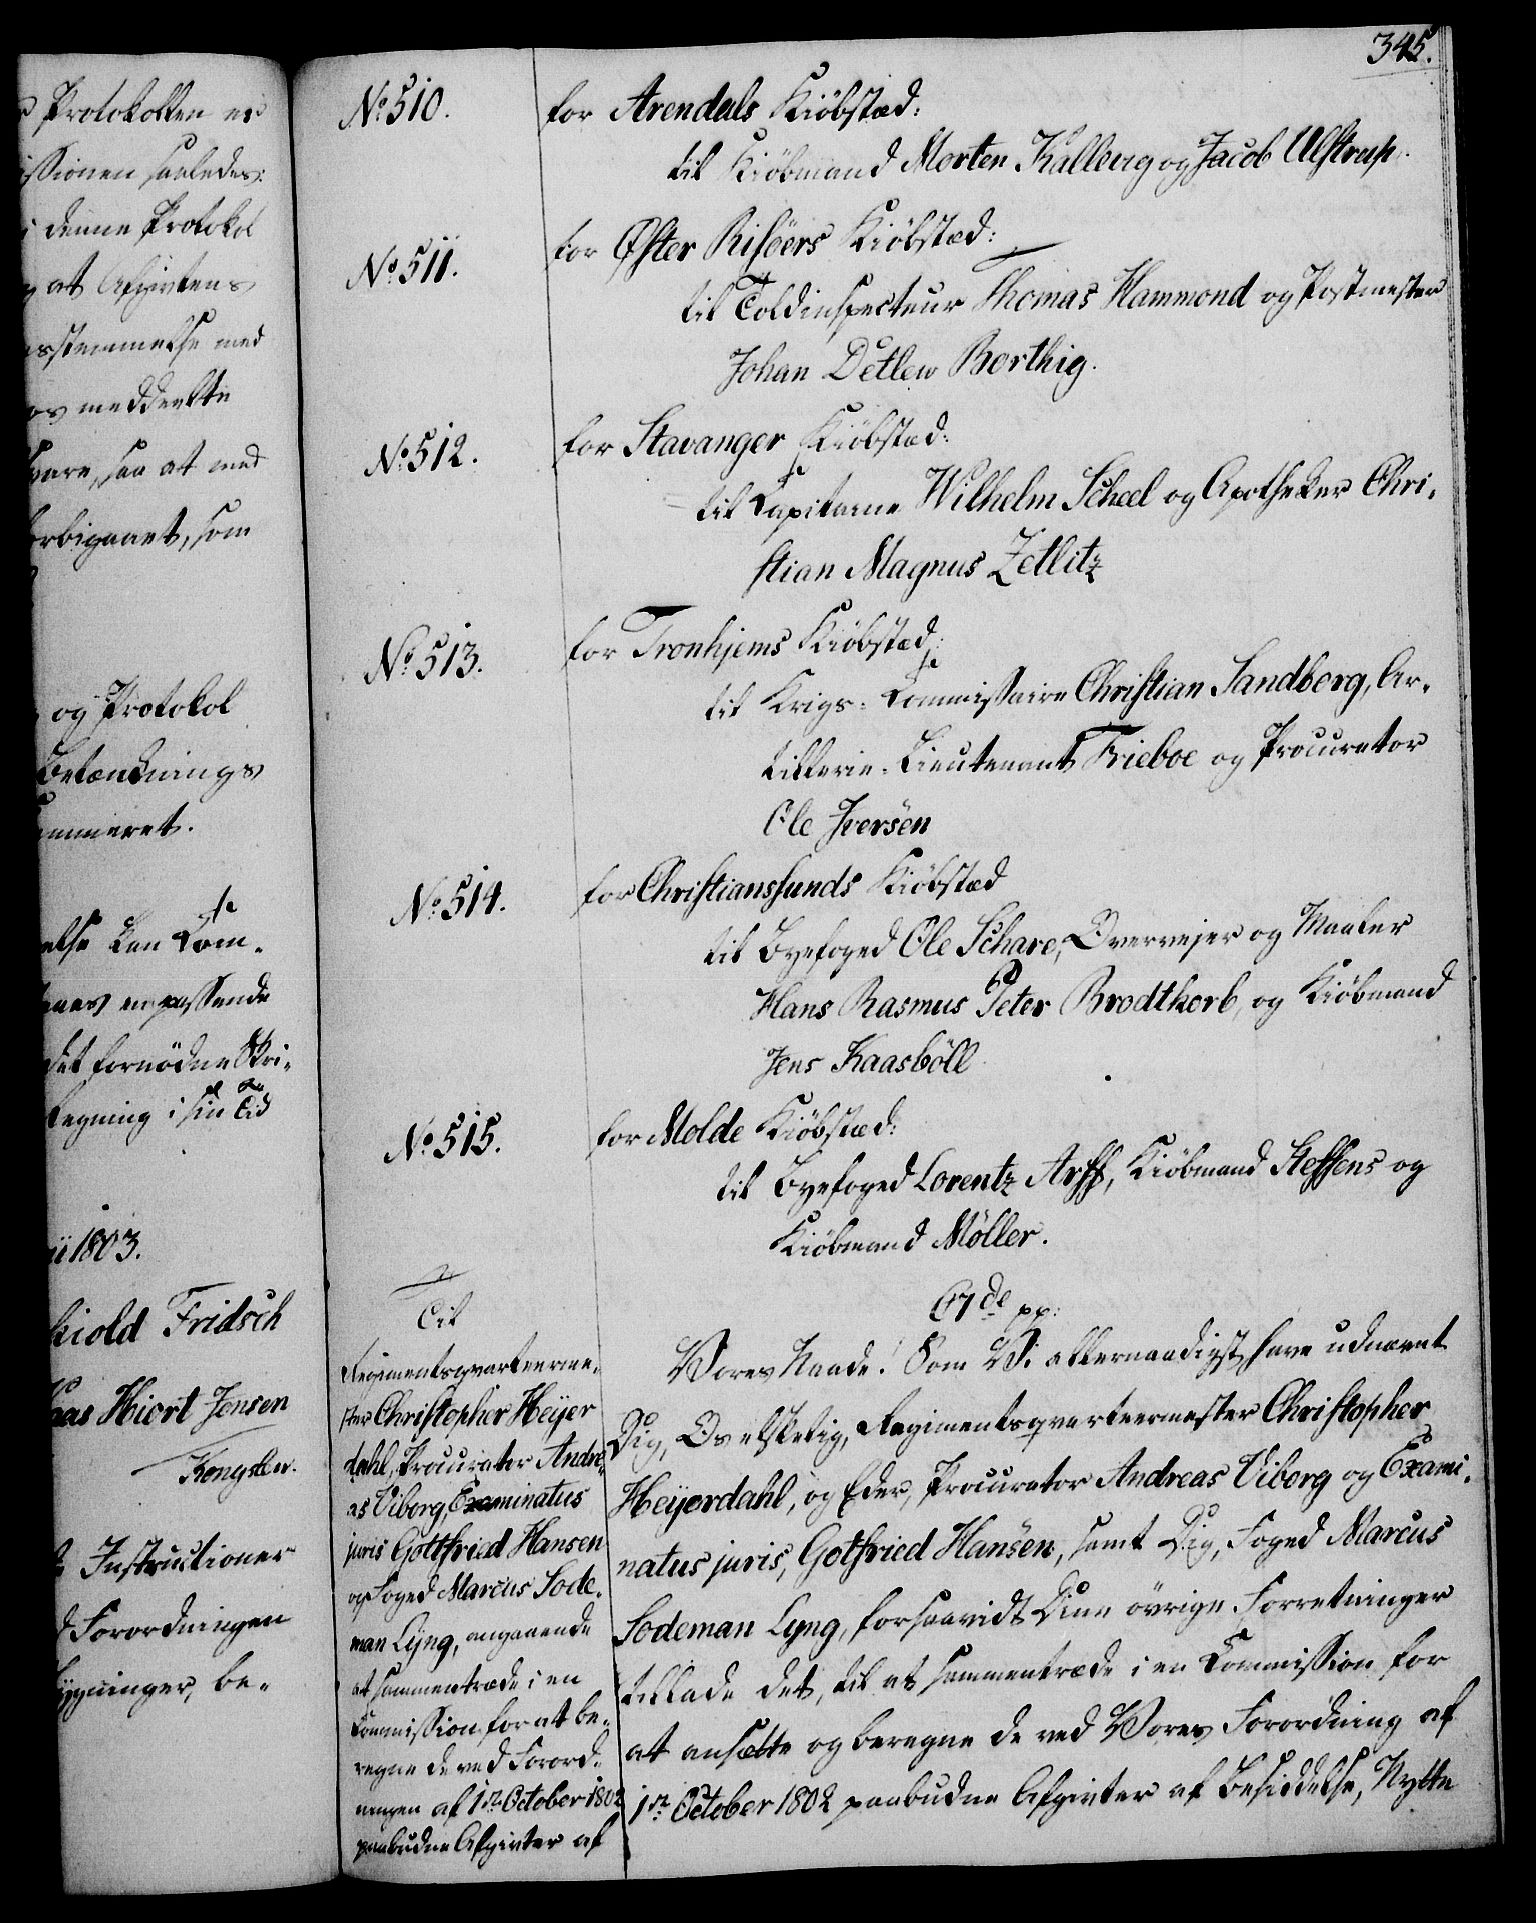 345.
Protokollen er
ssionen saaledes:
i denne Protokol
at Afgivtens
sstemmelse med
os meddeelte
svare, saa at med
orbigaaet, som
og Protokol
Betænknings
ummeret.
else kan Com-
enes en passende
det fornødne Skri-
Regning i sin Tid
ii 1803.
kiold Fridsch
aas Hiort Jensen
Kongslev.
Instructioner
d Forordningen
bygninger, be-
No. 510. for Arendals Kiøbstæd:
til Kiøbmand Morten Kallevig og Jacob Ulstrup.
No. 511. for Øster Risöers Kiøbstæd:
til Toldinspecteur Thomas Hammond og Postmester
Johan Detlew Berthig.
No. 512. for Stavanger Kiøbstæd:
til Capitaine Wilhelm Scheel og Apotheker Chri-
stian Magnus Zetlitz
No. 513. for Tronhjems Kiøbstæd;
til Krigs-Commissaire Christian Sandberg, Ar-
tillerie-Lieutenant Frieboe og Procurator
Ole Iversen
No. 514. for Christianssunds Kiøbstæd
til Byefoged Ole Schare, Overvejer og Maaler
Hans Rasmus Peter Brodtkorb, og Kiøbmand
Jens Kaasböll
No. 515. for Molde Kiøbstæd:
til Byefoged Lorentz Arff, Kiøbmand Steffens og
Kiøbmand Möller.
Til
Regimentsqvarteerme-
ster Christopher Heyer
dahl, Procurator Andre-
as Viborg, Examinatus
juris Gottfried Hansen
og Foged Marcus Sode-
man Lyng, angaaende
at sammentræde i en
Commission for at be-
regne de ved Forord-
ningen af 1ste October 1802
paabudne Afgivter af
C 7de pp:
Vores Naade! Som Vi allernaadigst have udnævnt
Dig, Os elskelig, Regimentsqvarteermester Christopher
Heyerdahl, og Eder, Procurator Andreas Viborg og Exami-
natus juris, Gotfried Hansen, samt Dig, Foged Marcus
Sodeman Lyng, forsaavidt Dine övrige Forretninger
tillade det, til at sammentræde i en Commission for
at ansætte og beregne de ved Vores Forordning af
1ste October 1802 paabudne Afgivter af Besiddelse, Nytte